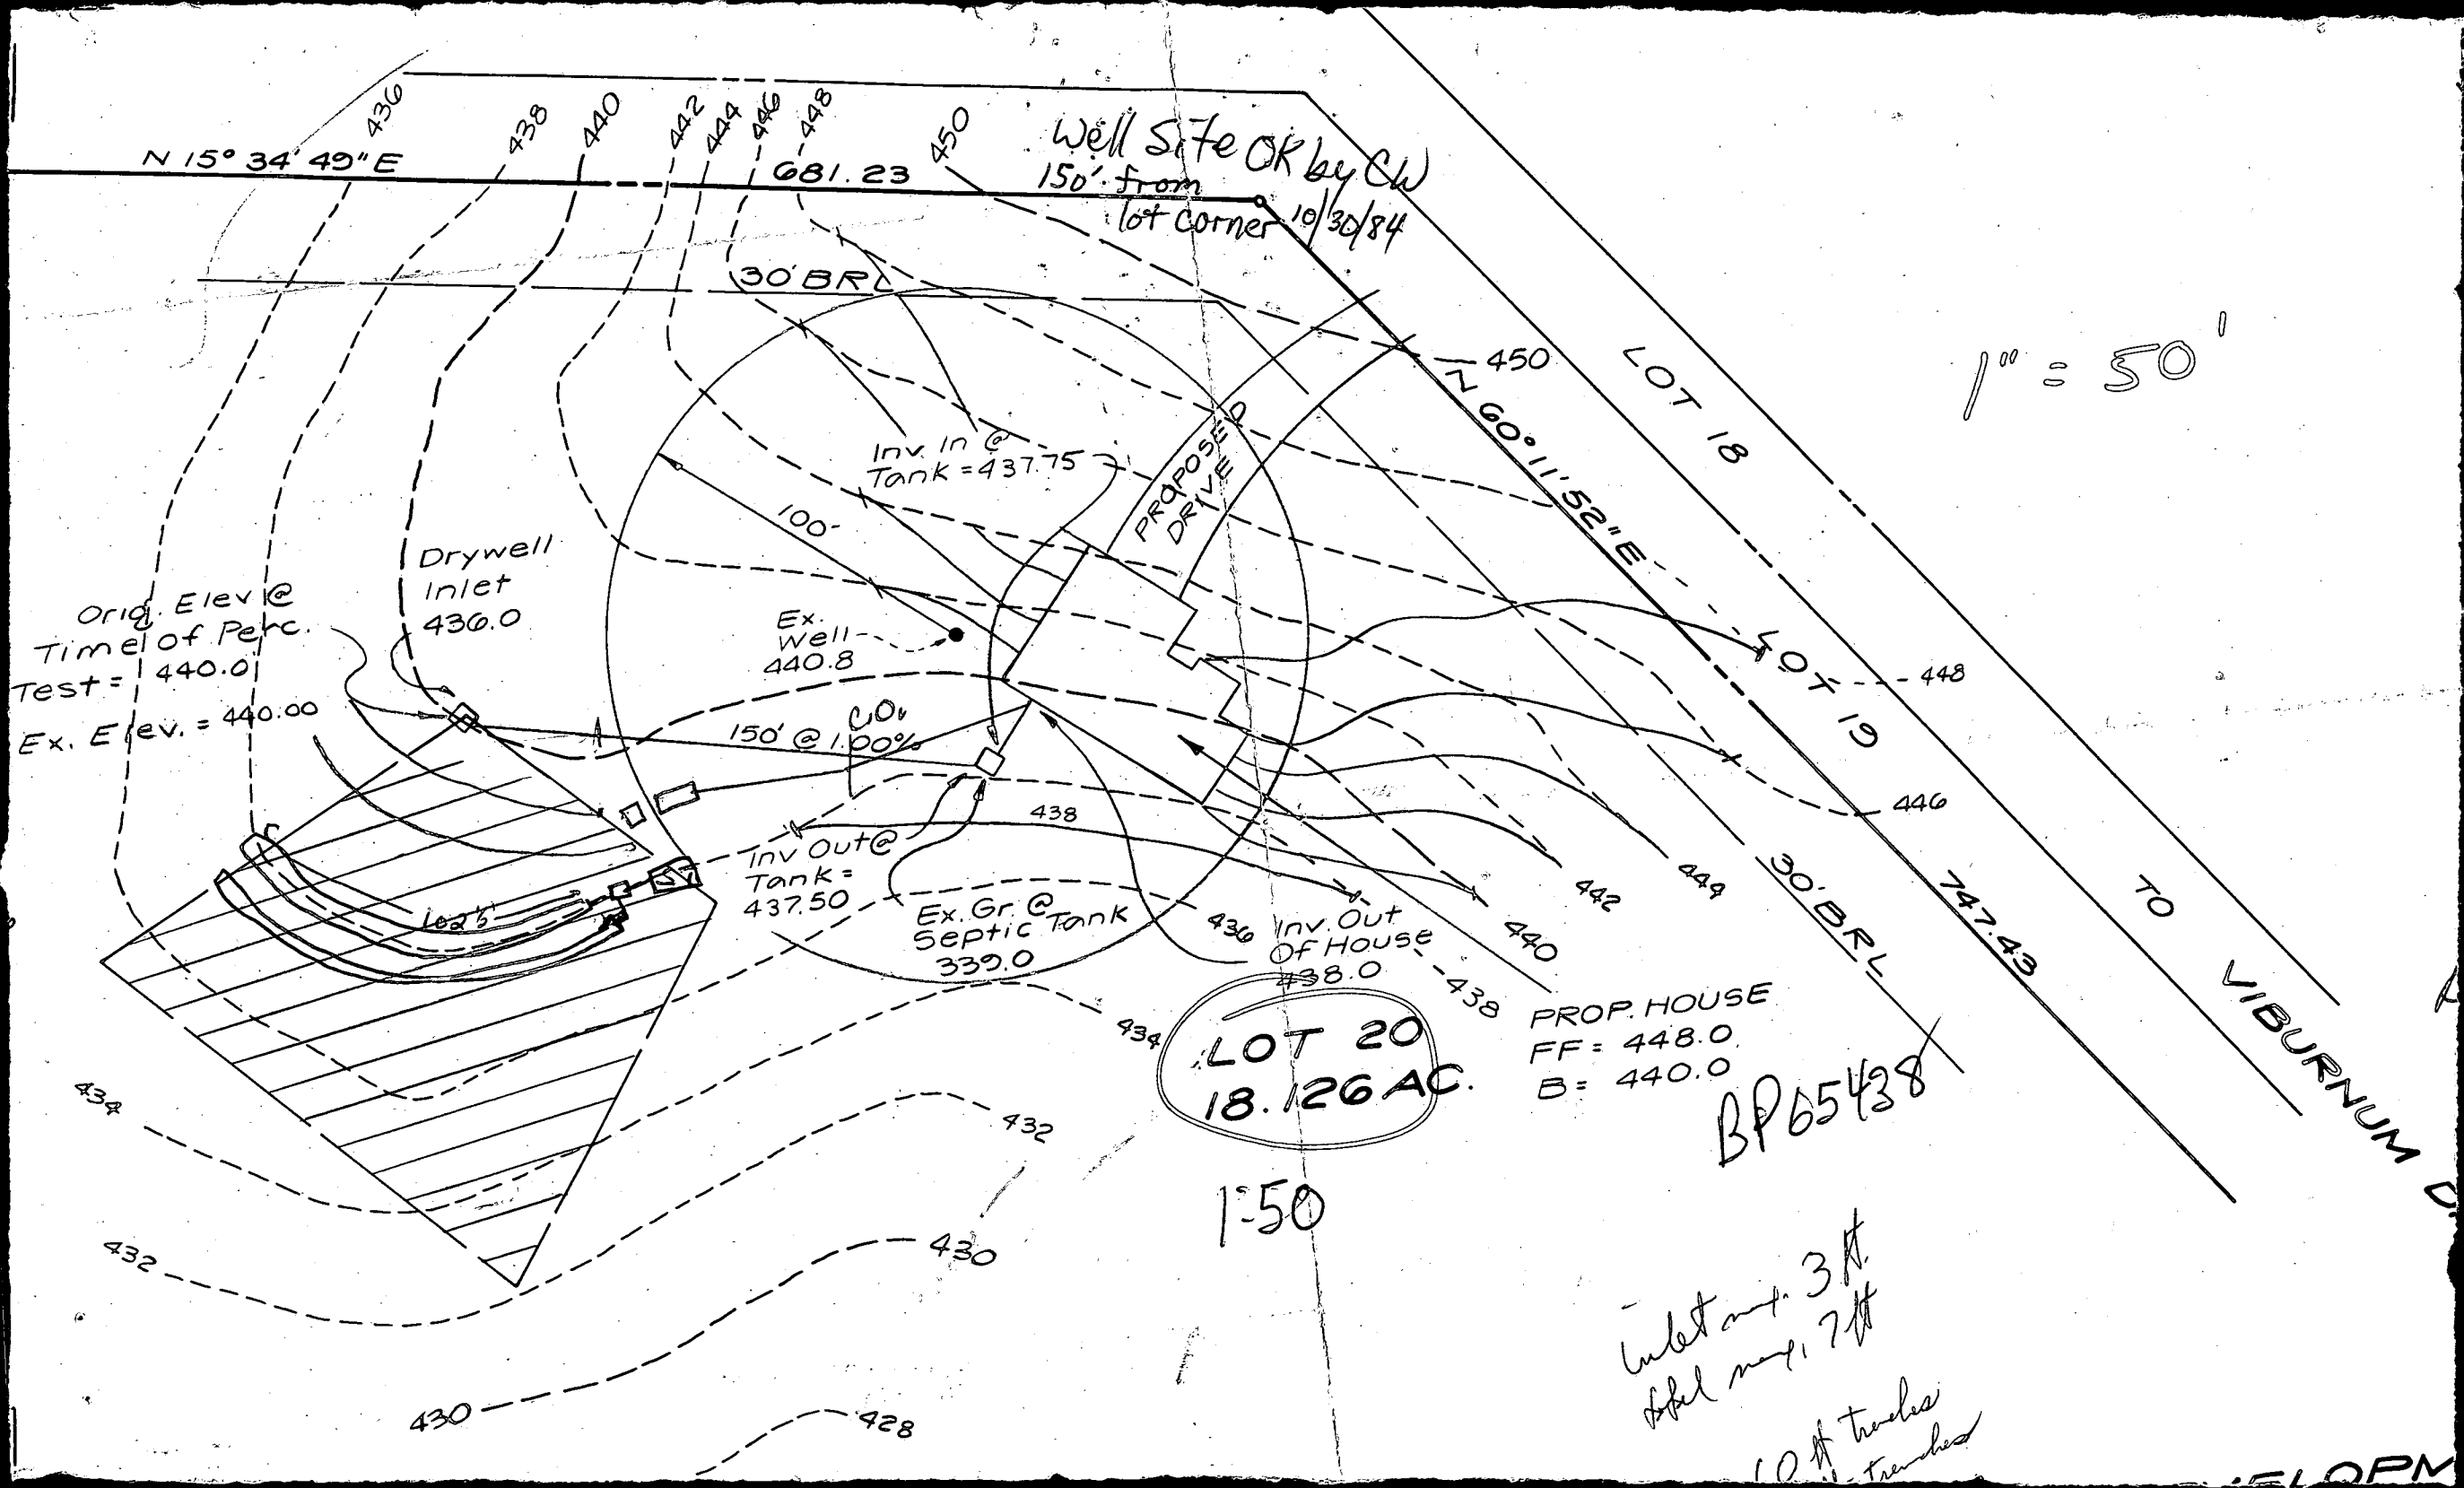 436
438
440
442
444
446
448
450
N 15° 34' 49" E
681.23
Well Site OK by CW
150' from
lot corner 10/30/84
30' BRL
1" = 50'
450
LOT 18
N 60° 11' 52" E
PROPOSED
DRIVE
Inv. In @
Tank = 437.75
100'
Drywell
Inlet
436.0
Orig. Elev @
Time of Perc.
Test = 440.0
Ex. Elev. = 440.00
Ex.
Well
440.8
LOT 19
448
446
150' @ 1.00%
CO.
438
Inv Out @
Tank =
437.50
Ex. Gr. @
Septic Tank
339.0
436
Inv. Out
Of House
438.0
440
442
444
30' BRL
747.43
TO
VIBURNUM D
102'
438
434
LOT 20
18.126 AC.
PROP. HOUSE
FF = 448.0
B = 440.0
BP65438
434
432
1"=50
432
430
430
428
Inlet max. 3 ft.
total max. 7 ft
0 ft trenches
trenches
ELOPM